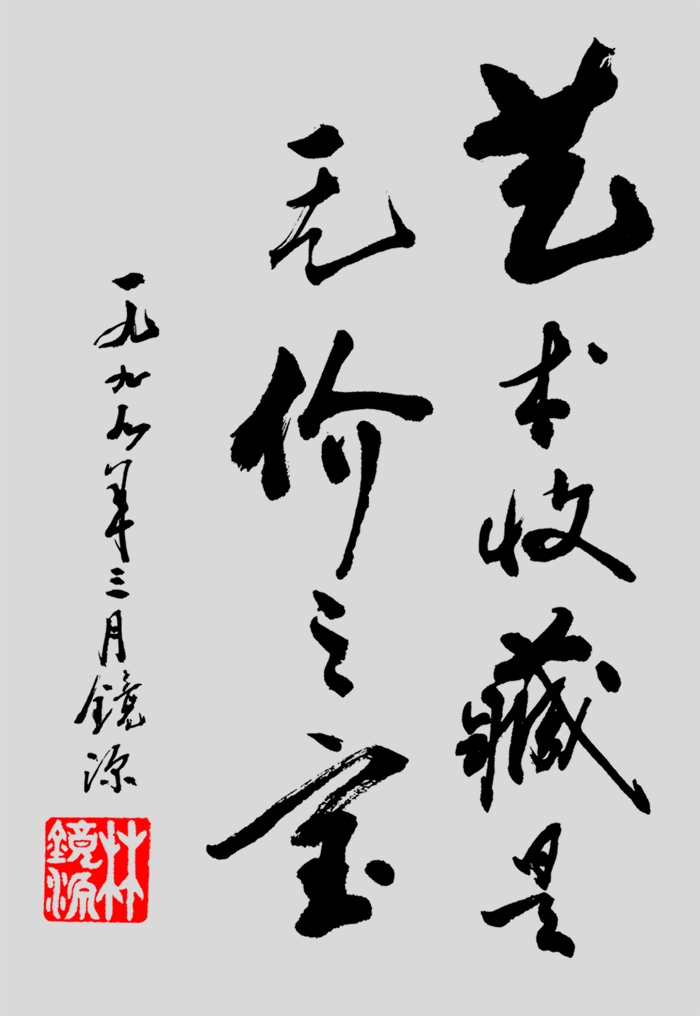 艺术收藏是
无价之宝
一九九九年三月镜源
林
鏡源